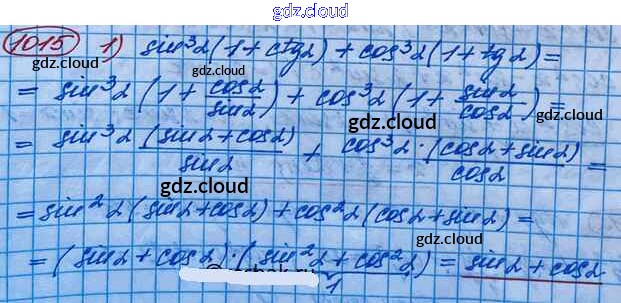 gdz.cloud
1015 1) sin³α(1+ctgα) + cos³α(1+tgα) =
gdz.cloud gdz.cloud
= sin³α (1 + cosα/sinα) + cos³α (1 + sinα/cosα) =
gdz.cloud gdz.cloud
= sin³α (sinα+cosα)/sinα + cos³α·(cosα+sinα)/cosα =
gdz.cloud
= sin²α (sinα+cosα) + cos²α (cosα+sinα) =
gdz.cloud
= (sinα + cosα)·(sin²α + cos²α) = sinα + cosα
1
gdz.cloud